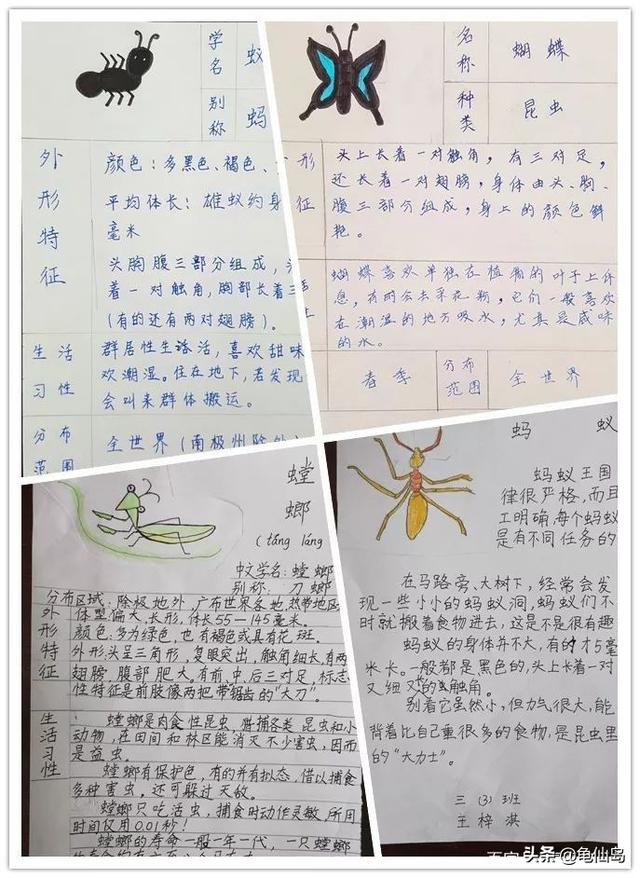 学名
蚁
别称
蚂
外形特征
颜色：多黑色、褐色、
平均体长：雄蚁约身
毫米
头胸腹三部分组成，头
着一对触角，胸部长着三
（有的还有两对翅膀）。
生活习性
群居性生活，喜欢甜味
欢潮湿。住在地下，若发现
会叫来群体搬运。
分布范围
全世界（南极州除外）
名称
蝴蝶
种类
昆虫
形征
头上长着一对触角，有三对足，
还长着一对翅膀，身体由头、胸、
腹三部分组成，身上的颜色鲜
艳。
蝴蝶喜欢单独在植物的叶子上休
息，有时会去采花粉，它们一般喜欢
在潮湿的地方吸水，尤其是咸味
的水。
春季
分布范围
全世界
螳
螂
(táng láng
中文学名：螳螂
别称：刀螂
分布区域：除极地外，广布世界各地，热带地区
外形特征
体型偏大，长形，体长55—145毫米。
颜色，多为绿色，也有褐色或具有花斑。
外形，头呈三角形，复眼突出，触角细长，有两
翅膀，腹部肥大。有前、中、后三对足，标志
性特征是前肢像两把带锯齿的“大刀”。
生活习性
螳螂是肉食性昆虫，猎捕各类昆虫和小
动物，在田间和林区能消灭不少害虫，因而
是益虫。
螳螂有保护色，有的并有拟态，借以捕食
多种害虫，还可躲过天敌。
螳螂只吃活虫，捕食时动作灵敏，所用
时间仅用0.01秒！
螳螂的寿命一般一年一代，一只螳螂
蚂蚁
蚂蚁王国
律很严格，而且
工明确，每个蚂蚁
是有不同任务的
在马路旁、大树下，经常会发
现一些小小的蚂蚁洞，蚂蚁们不
时就搬着食物进去，这是不是很有趣
蚂蚁的身体并不大，有的才5毫
米长。一般都是黑色的，头上长着一对
又细又的触角。
别看它虽然小，但力气很大，能
背着比自己重很多的食物，是昆虫里
的“大力士”。
三（3）班
王梓淇
头条 @龟仙岛